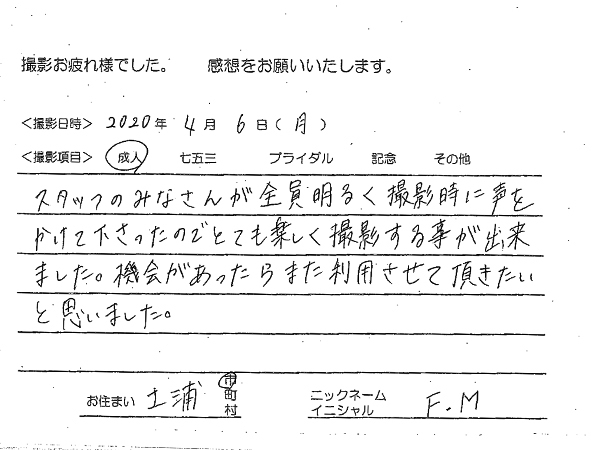 撮影お疲れ様でした。 感想をお願いいたします。
＜撮影日時＞ 2020年 4月 6日(月)
＜撮影項目＞ 成人 七五三 ブライダル 記念 その他
スタッフのみなさんが全員明るく撮影時に声を
かけて下さったのでとても楽しく撮影する事が出来
ました。機会があったらまた利用させて頂きたい
と思いました。
お住まい 土浦 市町村 ニックネーム イニシャル F.M